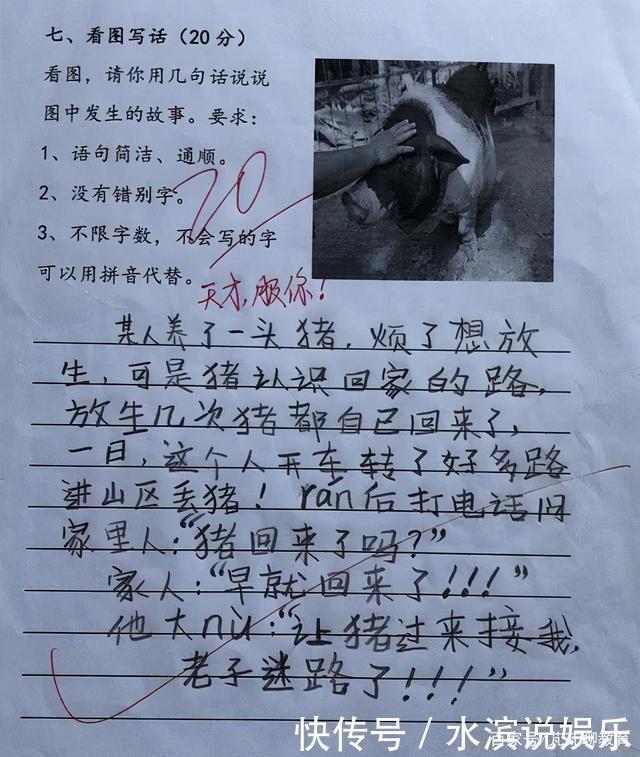 七、看图写话（20分）
看图，请你用几句话说说
图中发生的故事。要求：
1、语句简洁、通顺。
2、没有错别字。
3、不限字数，不会写的字
可以用拼音代替。
20
天才，服你！
某人养了一头猪，烦了想放
生，可是猪认识回家的路，
放生几次猪都自己回来了，
一日，这个人开车转了好多路
进山区丢猪！rán后打电话问
家里人：“猪回来了吗？”
家人：“早就回来了！！！”
他大nù：“让猪过来接我，
老子迷路了！！！”
快传号／水滨说娱乐